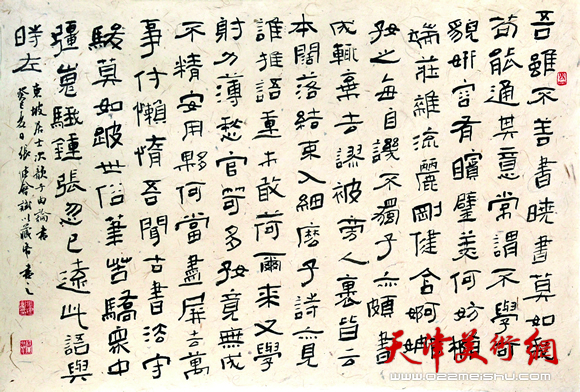 吾雖不善書曉書莫如我
苟能通其意常謂不學可
貌妍容有矉璧美何妨橢
端莊雜流麗剛健含婀娜
好之每自譏不獨子亦頗書
成輒棄去謬被旁人裹皆云
本闊落結束入細麼子詩亦見
誰推語重未敢荷爾來又學
射力薄愁官笴多好竟無成
不精安用夥何當盡屏去萬
事付懶惰吾聞古書法守
駿莫如跛世俗筆苦驕衆中
彊嵬騀鍾張忽已遠此語與
時左
東坡居士次韻子由論書
癸巳夏日張建會
天津美術網
www.022meishu.com